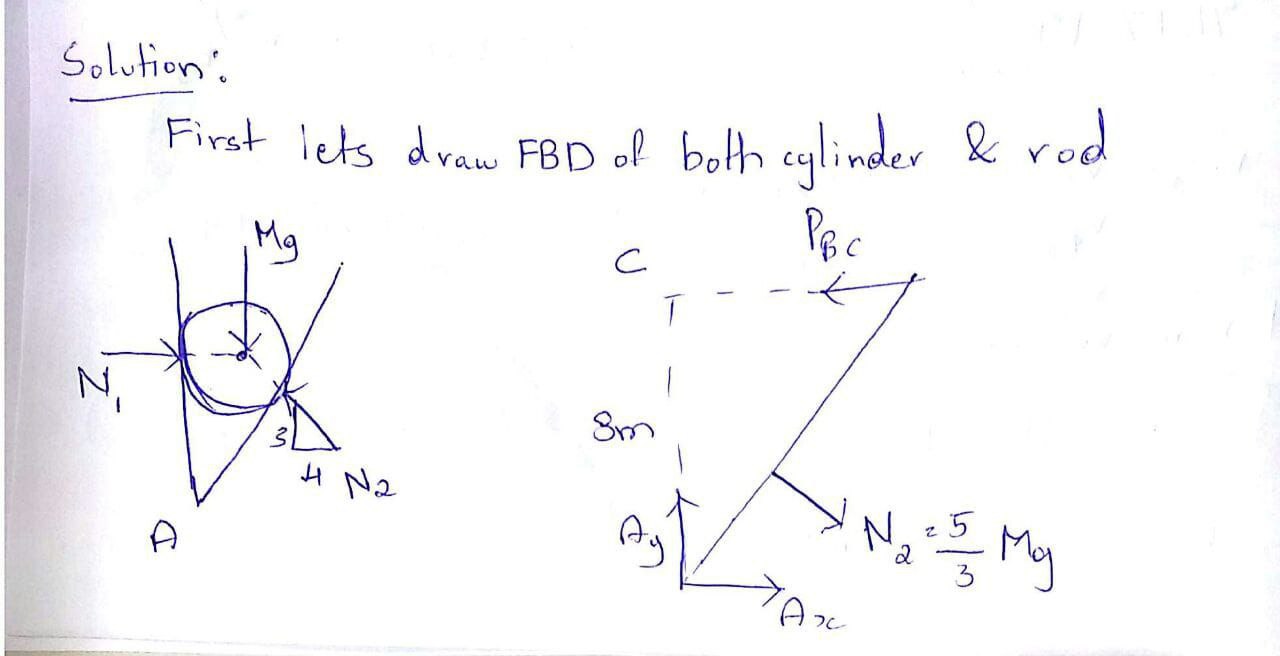 Solution:
First lets draw FBD of both cylinder & rod
Mg
N1
3
4 N2
A
PBC
C
8m
Ay
Ax
N2 = 5/3 Mg